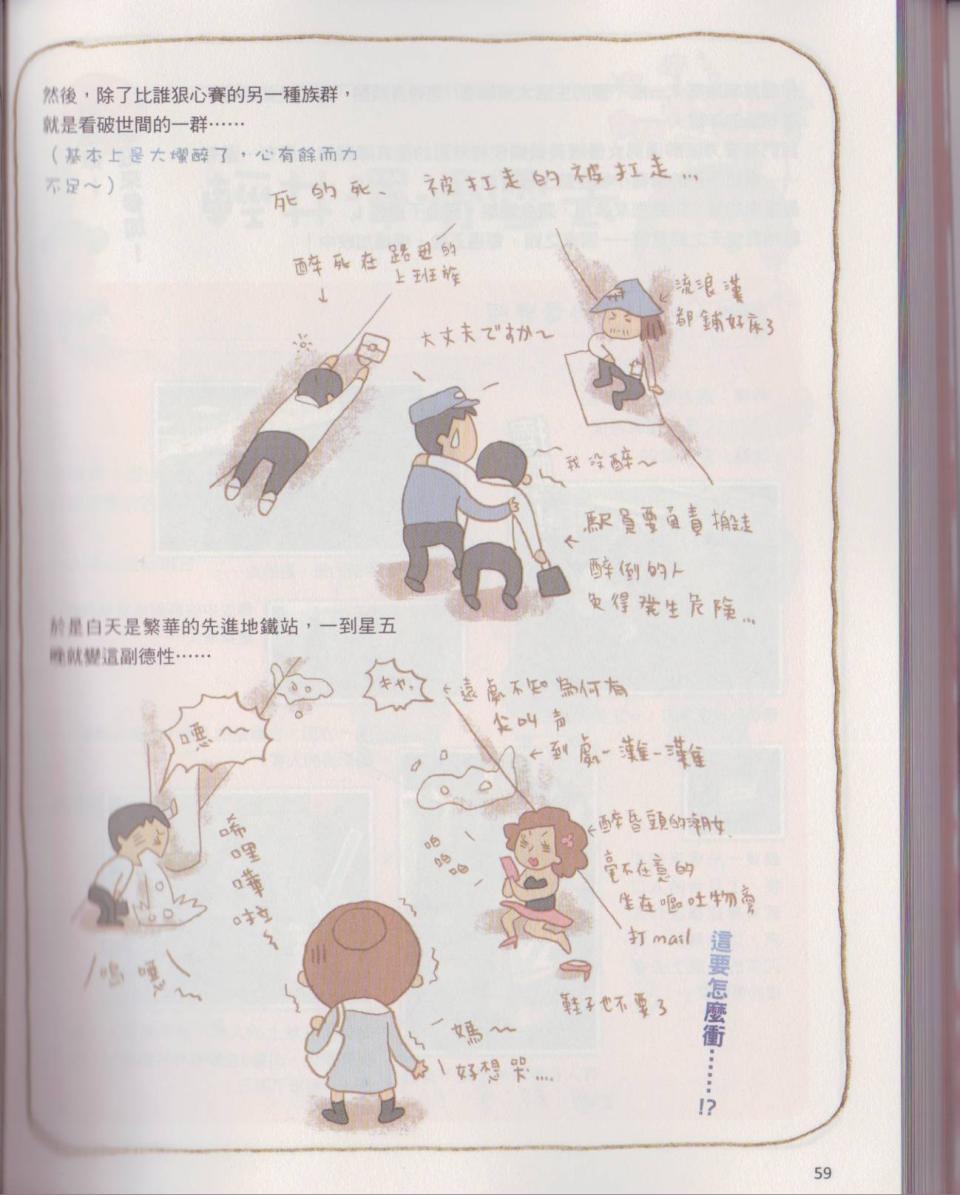 然後，除了比誰狠心賽的另一種族群，
就是看破世間的一群……
（基本上是大爛醉了，心有餘而力
不足～）
死的死、被扛走的被扛走…
醉死在路邊的
上班族
大丈夫ですか～
流浪漢
都鋪好床了
我沒醉～
駅員要負責搬走
醉倒的人
免得發生危險…
於是白天是繁華的先進地鐵站，一到星五
晚就變這副德性……
噁～
キャ
遠處不知為何有
尖叫声
到處一灘一灘
唏
哩
嘩
啦
啪
啪
啪
醉昏頭的潮女
毫不在意的
坐在嘔吐物旁
打mail
嗚噁
鞋子也不要了
媽～
好想哭….
這要怎麼衝……!?
59